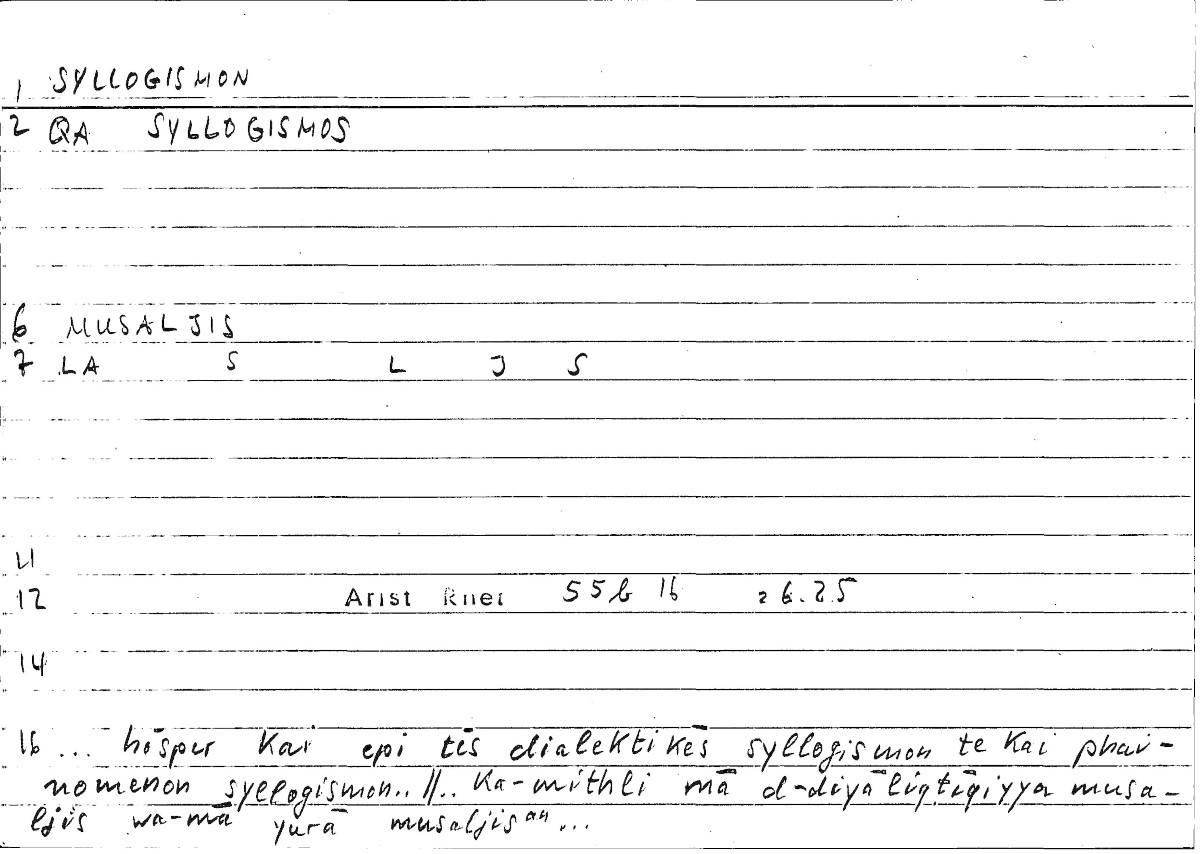 1 SYLLOGISMON
2 QA SYLLOGISMOS
6 MUSALJIS
7 LA S L J S
11
12 Arist Rhet 55b 16 26.25
14
16 ... hōsper kai epi tēs dialektikēs syllogismon te kai phai-
nomenon syllogismon..//.. ka-mithli mā d-diyāliqtīqiyya musa-
ljis wa-mā yurā musaljisᵃⁿ...